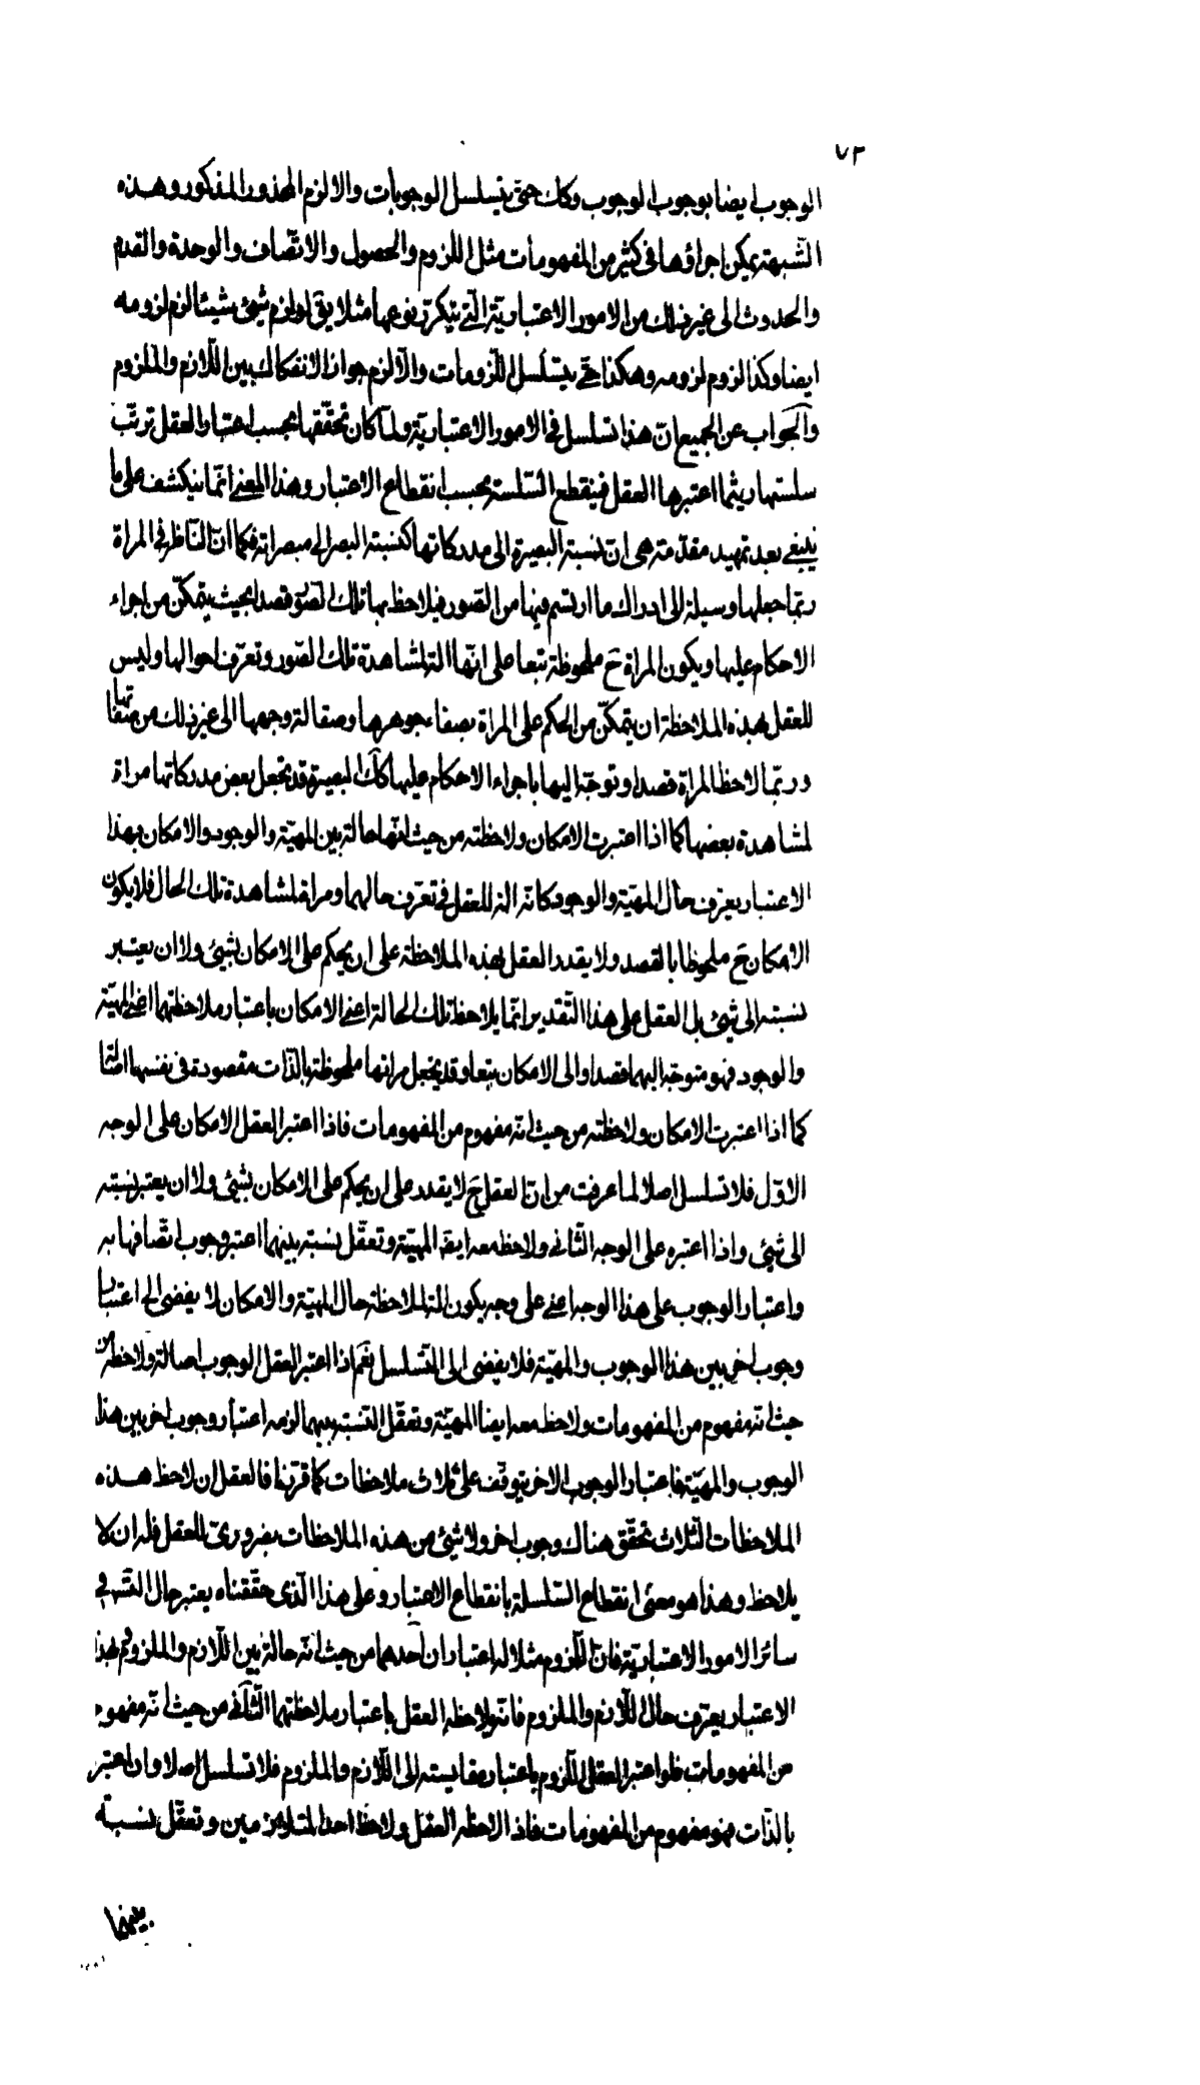 ٧٢
الوجوب ايضا بوجوب الوجوب وكك حتى يتسلسل الوجوبات والا لزم المحذور المذكور وهذه
الشبهة يمكن اجراؤها فى كثير من المفهومات مثل اللزوم والحصول والاتصاف والوحدة والقدم
والحدوث الى غير ذلك من الامور الاعتبارية التى يتكرر نوعها مثلا يق لو لزم شيئ شيئا لزم لزومه
ايضا وكذا لزوم لزومه وهكذا حتى يتسلسل اللزومات والا لزم جواز الانفكاك بين اللازم والملزوم
والجواب عن الجميع ان هذا تسلسل فى الامور الاعتبارية ولما كان تحققها بحسب اعتبار العقل ترتب
سلسلتها ريثما اعتبرها العقل فينقطع السلسلة بحسب انقطاع الاعتبار وهذا المعنى انما ينكشف على ما
ينبغى بعد تمهيد مقدمة هى ان نسبة البصيرة الى مدركاتها كنسبة البصر الى مبصراته فكما ان الناظر فى المراة
ربما جعلها وسيلة الى ادراك ما ارتسم فيها من الصور فيلاحظ بها تلك الصور قصدا بحيث يتمكن من اجراء
الاحكام عليها ويكون المراة ح ملحوظة تبعا على انها الة لمشاهدة تلك الصور وتعرف احوالها وليس
للعقل بهذه الملاحظة ان يتمكن من الحكم على المراة بصفاء جوهرها وصقالة وجهها الى غير ذلك من صفاتها
وربما لاحظ المراة قصدا وتوجه اليها باجراء الاحكام عليها كك البصيرة قد تجعل بعض مدركاتها مراة
لمشاهدة بعضها كما اذا اعتبرت الامكان ولاحظته من حيث انها حالة بين المهية والوجود والامكان بهذا
الاعتبار يعرف حال المهية والوجود كانه الة للعقل فى تعرف حالهما ومراة لمشاهدة تلك الحال فلا يكون
الامكان ح ملحوظا بالقصد ولا يقدر العقل بهذه الملاحظة على ان يحكم على الامكان بشيئ ولا ان يعتبر
نسبته الى شيئ بل العقل على هذا التقدير انما يلاحظ تلك الحالة اعنى الامكان باعتبار ملاحظتهما اعنى المهية
والوجود فهو متوجه اليهما قصدا والى الامكان تبعا وقد يجعل مراتها ملحوظة بالذات مقصودة فى نفسها
كما اذا اعتبرت الامكان ولاحظته من حيث انه مفهوم من المفهومات فاذا اعتبر العقل الامكان على الوجه
الاول فلا تسلسل اصلا لما عرفت من ان العقل ح لا يقدر على ان يحكم على الامكان بشيئ ولا ان يعتبر نسبته
الى شيئ واذا اعتبره على الوجه الثانى ولاحظ معه ايضا المهية وتعقل نسبته بينهما اعتبر وجوب اتصافها به
واعتبار الوجوب على هذا الوجه اعنى على وجه يكون الة لملاحظة حال المهية والامكان لا يفضى الى اعتبار
وجوب اخر بين هذا الوجوب والمهية فلا يفضى الى التسلسل نعم اذا اعتبر العقل الوجوب اصالة ولاحظه من
حيث انه مفهوم من المفهومات ولاحظ معه ايضا المهية وتعقل النسبة بينهما لزمه اعتبار وجوب اخر بين هذا
الوجوب والمهية فاعتبار الوجوب الاخر يتوقف على ثلاث ملاحظات كما قررنا فالعقل ان لاحظ هذه
الملاحظات الثلاث تحقق هناك وجوب اخر ولا شيئ من هذه الملاحظات بضرورى للعقل فله ان لا
يلاحظ وهذا هو معنى انقطاع السلسلة بانقطاع الاعتبار وعلى هذا الذى حققناه يعتبر حال التسه فى
سائر الامور الاعتبارية فان اللزوم مثلا له اعتباران احدهما من حيث انه حالة بين اللازم والملزوم بهذا
الاعتبار يعرف حال اللازم والملزوم فانه يلاحظه العقل باعتبار ملاحظتهما الثانى من حيث انه مفهوم
من المفهومات فلو اعتبر العقل اللزوم باعتبار مقايسته الى اللازم والملزوم فلا تسلسل اصلا وان اعتبر
بالذات فهو مفهوم من المفهومات فاذا لاحظه العقل ولاحظ احد المتلازمين وتعقل نسبته
بينهما